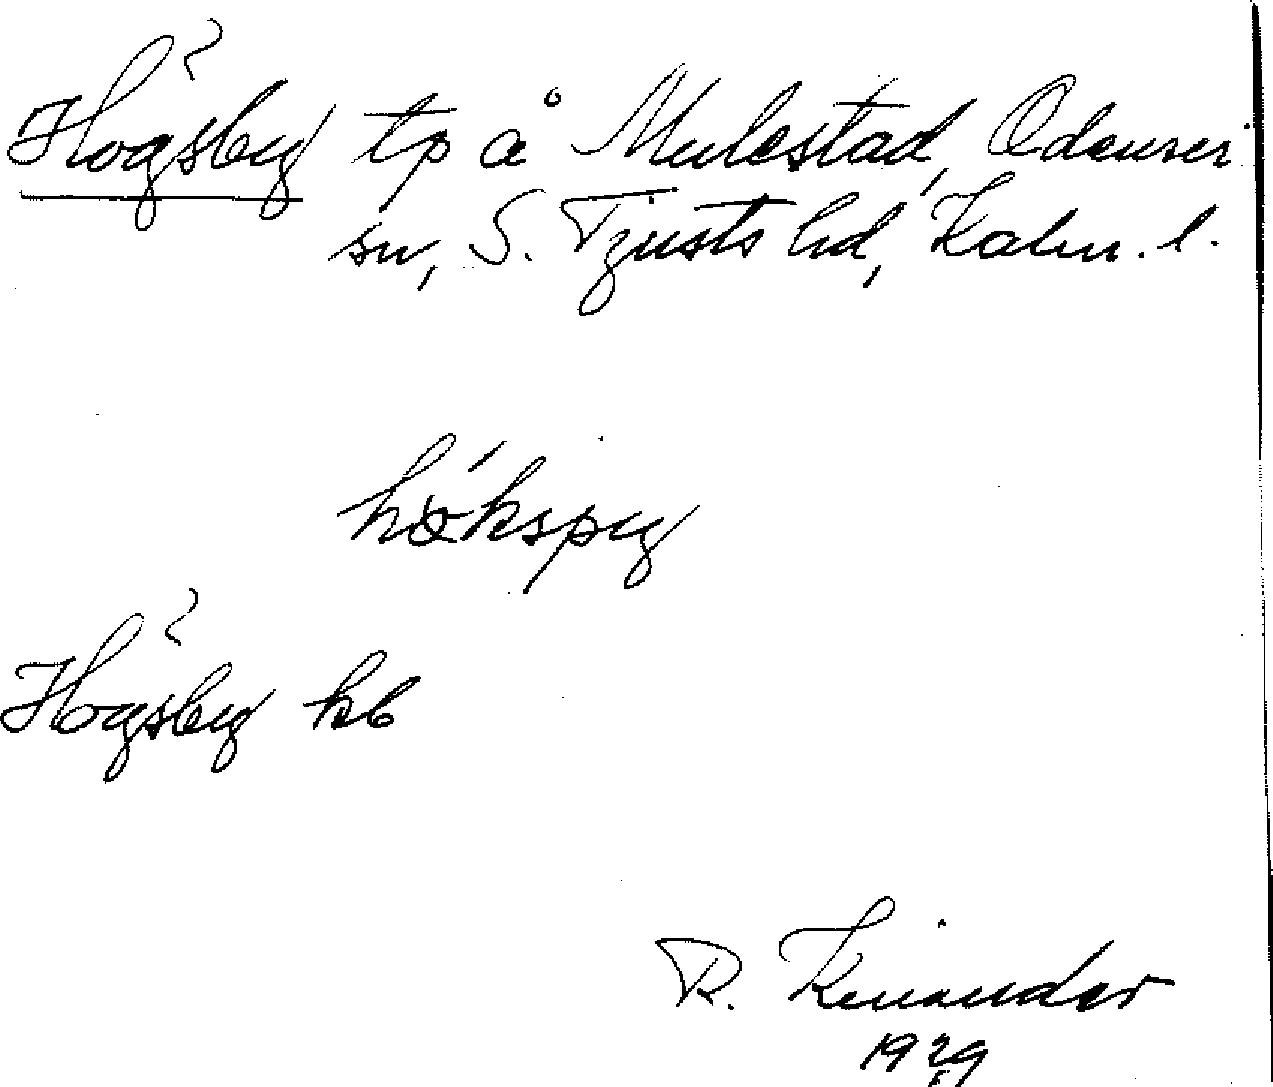 Högsby tp å Mulestad, Odensvi
sv, S. Tjusts hd, Kalm. l.
hökspy
Högsby kb
R. Kinander
1929